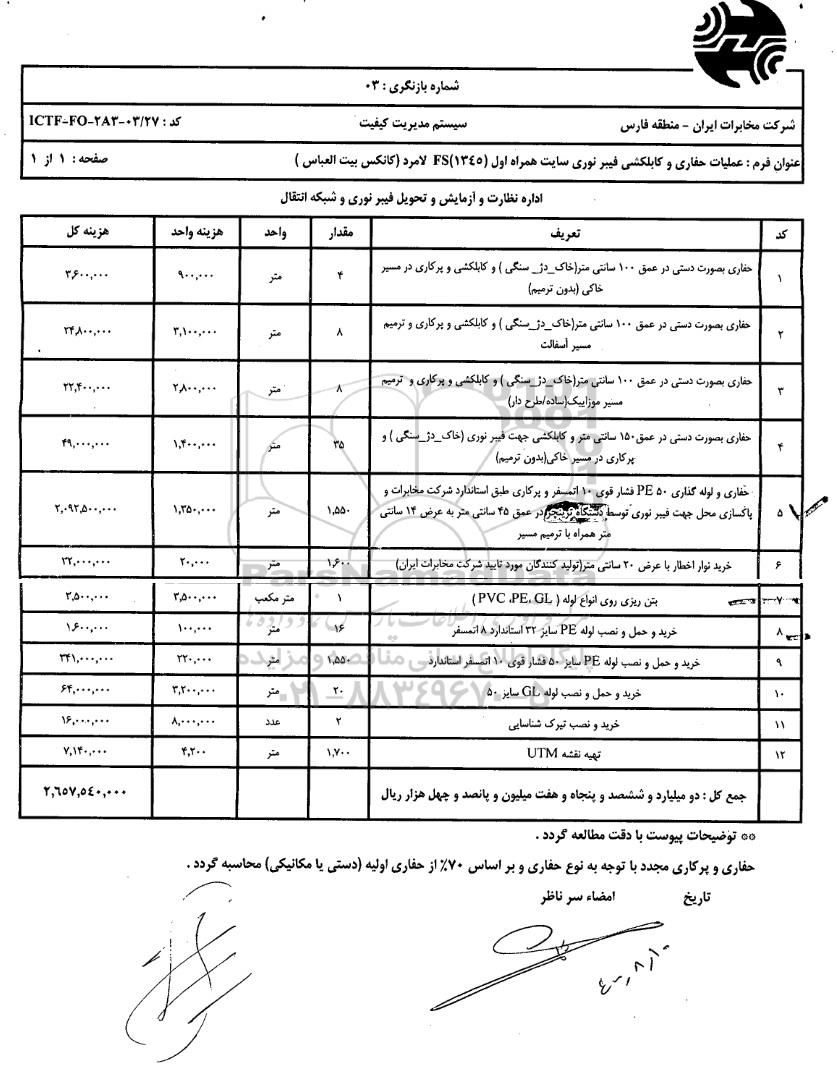 شماره بازنگری : ۰۳
شرکت مخابرات ایران - منطقه فارس	سیستم مدیریت کیفیت	کد : ICTF-FO-۲A۳-۰۳/۲۷
عنوان فرم : عملیات حفاری و کابلکشی فیبر نوری سایت همراه اول FS(۱۳٤٥) لامرد (کانکس بیت العباس )	صفحه : ۱ از ۱
اداره نظارت و آزمایش و تحویل فیبر نوری و شبکه انتقال
کد	تعریف	مقدار	واحد	هزینه واحد	هزینه کل
۱	حفاری بصورت دستی در عمق ۱۰۰ سانتی متر(خاک_دژ_ سنگی ) و کابلکشی و پرکاری در مسیر	۴	متر	۹۰۰,۰۰۰	۳,۶۰۰,۰۰۰
خاکی (بدون ترمیم)
۲	حفاری بصورت دستی در عمق ۱۰۰ سانتی متر(خاک_دژ_سنگی ) و کابلکشی و پرکاری و ترمیم	۸	متر	۳,۱۰۰,۰۰۰	۲۴,۸۰۰,۰۰۰
مسیر آسفالت
۳	حفاری بصورت دستی در عمق ۱۰۰ سانتی متر(خاک_دژ_سنگی ) و کابلکشی و پرکاری و ترمیم	۸	متر	۲,۸۰۰,۰۰۰	۲۲,۴۰۰,۰۰۰
مسیر موزاییک(ساده/طرح دار)
۴	حفاری بصورت دستی در عمق۱۵۰ سانتی متر و کابلکشی جهت فیبر نوری (خاک_دژ_سنگی ) و	۳۵	متر	۱,۴۰۰,۰۰۰	۴۹,۰۰۰,۰۰۰
پرکاری در مسیر خاکی(بدون ترمیم)
حفاری و لوله گذاری PE ۵۰ فشار قوی ۱۰ اتمسفر و پرکاری طبق استاندارد شرکت مخابرات و
۵	پاکسازی محل جهت فیبر نوری توسط دستگاه ترینچر در عمق ۴۵ سانتی متر به عرض ۱۴ سانتی	۱,۵۵۰	متر	۱,۳۵۰,۰۰۰	۲,۰۹۲,۵۰۰,۰۰۰
متر همراه با ترمیم مسیر
۶	خرید نوار اخطار با عرض ۲۰ سانتی متر(تولید کنندگان مورد تایید شرکت مخابرات ایران)	۱,۶۰۰	متر	۲۰,۰۰۰	۳۲,۰۰۰,۰۰۰
۷	بتن ریزی روی انواع لوله ( PVC ،PE، GL )	۱	متر مکعب	۳,۵۰۰,۰۰۰	۳,۵۰۰,۰۰۰
۸	خرید و حمل و نصب لوله PE سایز ۳۲ استاندارد ۸ اتمسفر	۱۶	متر	۱۰۰,۰۰۰	۱,۶۰۰,۰۰۰
۹	خرید و حمل و نصب لوله PE سایز ۵۰ فشار قوی ۱۰ اتمسفر استاندارد	۱,۵۵۰	متر	۲۲۰,۰۰۰	۳۴۱,۰۰۰,۰۰۰
۱۰	خرید و حمل و نصب لوله GL سایز ۵۰	۲۰	متر	۳,۲۰۰,۰۰۰	۶۴,۰۰۰,۰۰۰
۱۱	خرید و نصب تیرک شناسایی	۲	عدد	۸,۰۰۰,۰۰۰	۱۶,۰۰۰,۰۰۰
۱۲	تهیه نقشه UTM	۱,۷۰۰	متر	۴,۲۰۰	۷,۱۴۰,۰۰۰
جمع کل : دو میلیارد و ششصد و پنجاه و هفت میلیون و پانصد و چهل هزار ریال	۲,٦٥٧,٥٤٠,۰۰۰
** توضیحات پیوست با دقت مطالعه گردد .
حفاری و پرکاری مجدد با توجه به نوع حفاری و بر اساس ۷۰٪ از حفاری اولیه (دستی یا مکانیکی) محاسبه گردد .
تاریخ	امضاء سر ناظر
ParsNamadData
۰۲۱-۸۸۳۴۹۶۷۰-۵